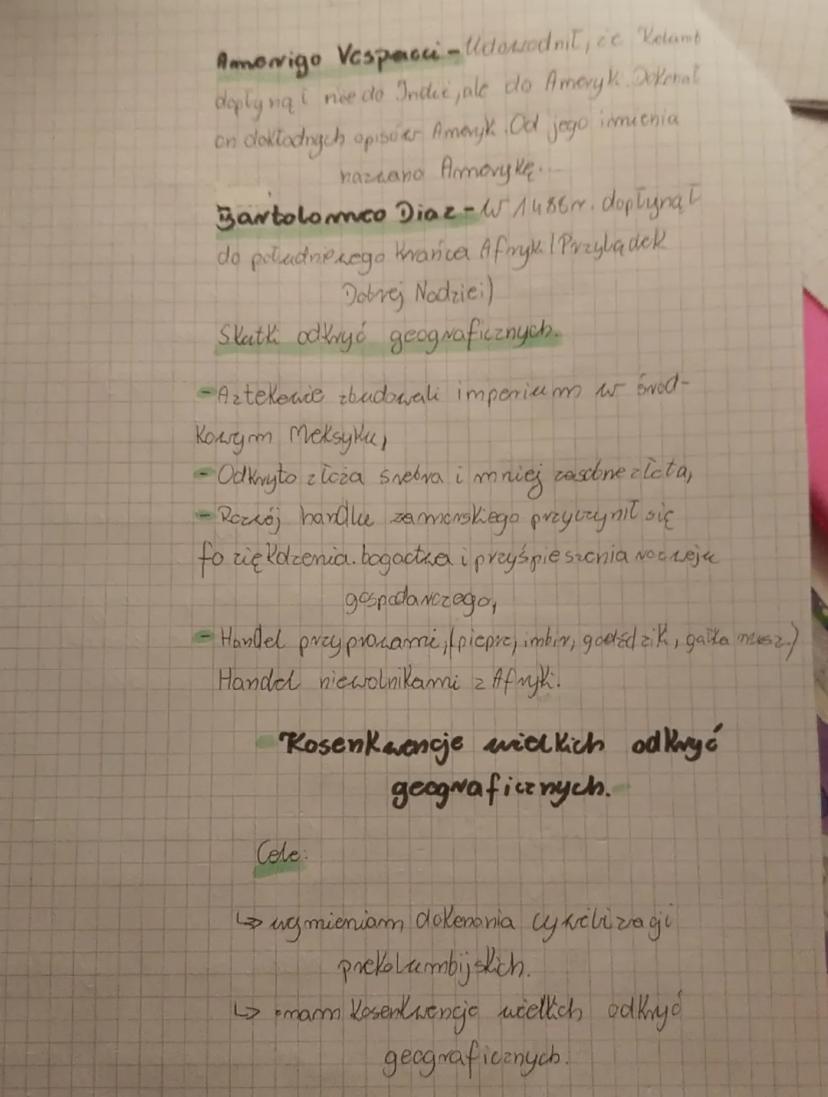 Amerigo Vespucci - Udowodnił, że Kolumb
dopłynął nie do Indii, ale do Ameryk. Dokonał
on dokładnych opisów Ameryk. Od jego imienia
nazwano Amerykę.
Bartolomeo Diaz - W 1486r. dopłynął
do południowego krańca Afryk (Przylądek
Dobrej Nadziei)
Skutki odkryć geograficznych.
- Aztekowie zbudowali imperium w środ-
kowym Meksyku,
- Odkryto złoża srebra i mniej zasobne złota,
- Rozwój handlu zamorskiego przyczynił się
bogactwa i przyśpieszenia rozwoju
gospodarczego,
- Handel przyprawami, (pieprz, imbir, goździk, gałka musz.)
Handel niewolnikami z Afryki.
Kosenkwencje wielkich odkryć
geograficznych.
Cele:
↳ wymieniam dokonania cywilizacji
prekolumbijskich.
↳ znam kosenkwencje wielkich odkryć
geograficznych.